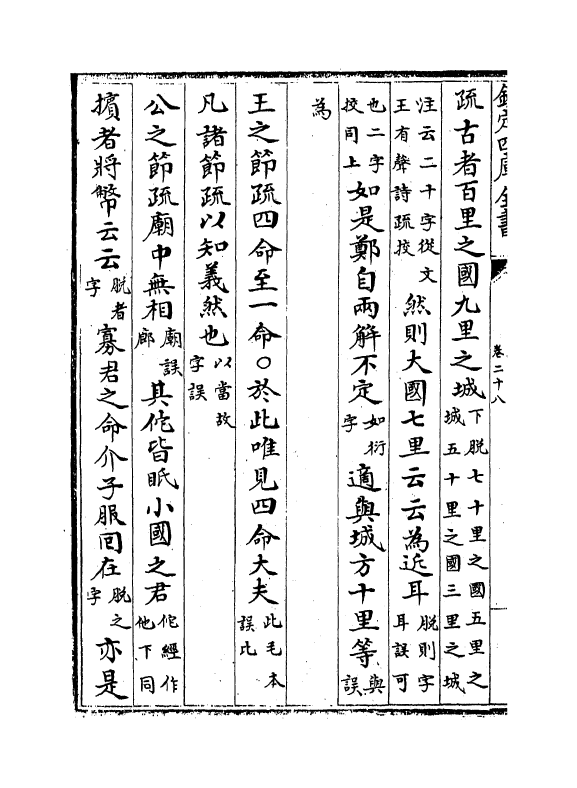 欽定四庫全書
卷二十八
疏古者百里之國九里之城下脫七十里之國五里之城五十里之國三里之城
注云二十字從文王有聲詩疏挍然則大國七里云云為近耳脫則字耳誤可
也二字挍同上如是鄭自兩解不定如衍字適與城方十里等與誤
為
王之節疏四命至一命○於此唯見四命大夫此毛本誤比
凡諸節疏以知義然也以當故字誤
公之節疏廟中無相廟誤廊其佗皆眡小國之君佗經作他下同
擯者將幣云云脫者字寡君之命介子服回在脫之字亦是